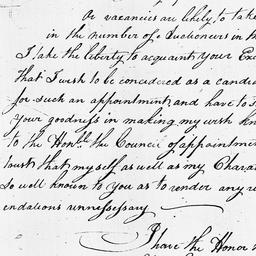 As vacancies are likely to take
in the number of Auctioneers in th
I take the liberty to acquaint your Exc
that I wish to be concedered as a candi
for such an appointment, and have to s
your goodness in making my wish kn
to the Honble the Council of appointmen
trust that myself as well as my Charac
so well known to you as to render any r
endations unnessessary
I have the Honor